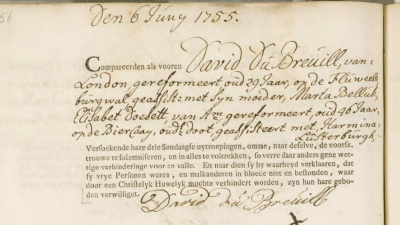 56
Den 6 Juny 1755.
Compareerden als vooren David Du Breuill, van
London, gereformeert oud 29 Jaar, op de Fluweele
burgwal, geassist: met syn moeder, Marta Belliut,
Elisabet Doesett van Am: gereformeert, oud 46 Jaar,
op de Bierkaay, ouds doot, geassisteert met, Harmina
Leusterburgh.
Versoekende hare drie Sondagse uytroepingen, omme, naar deselve, de voorsz.
trouwe te solemniseren, en in alles te voltrekken, so verre daar anders gene wet-
tige verhinderinge voor en valle. En naar dien sy by waarheyd verklaarden, dat
sy vrye Personen waren, en malkanderen in bloede niet en bestonden, waar
door een Christelyk Huwelyk mochte verhindert worden, zyn hun hare gebo-
den verwilliget.
David du Breuill